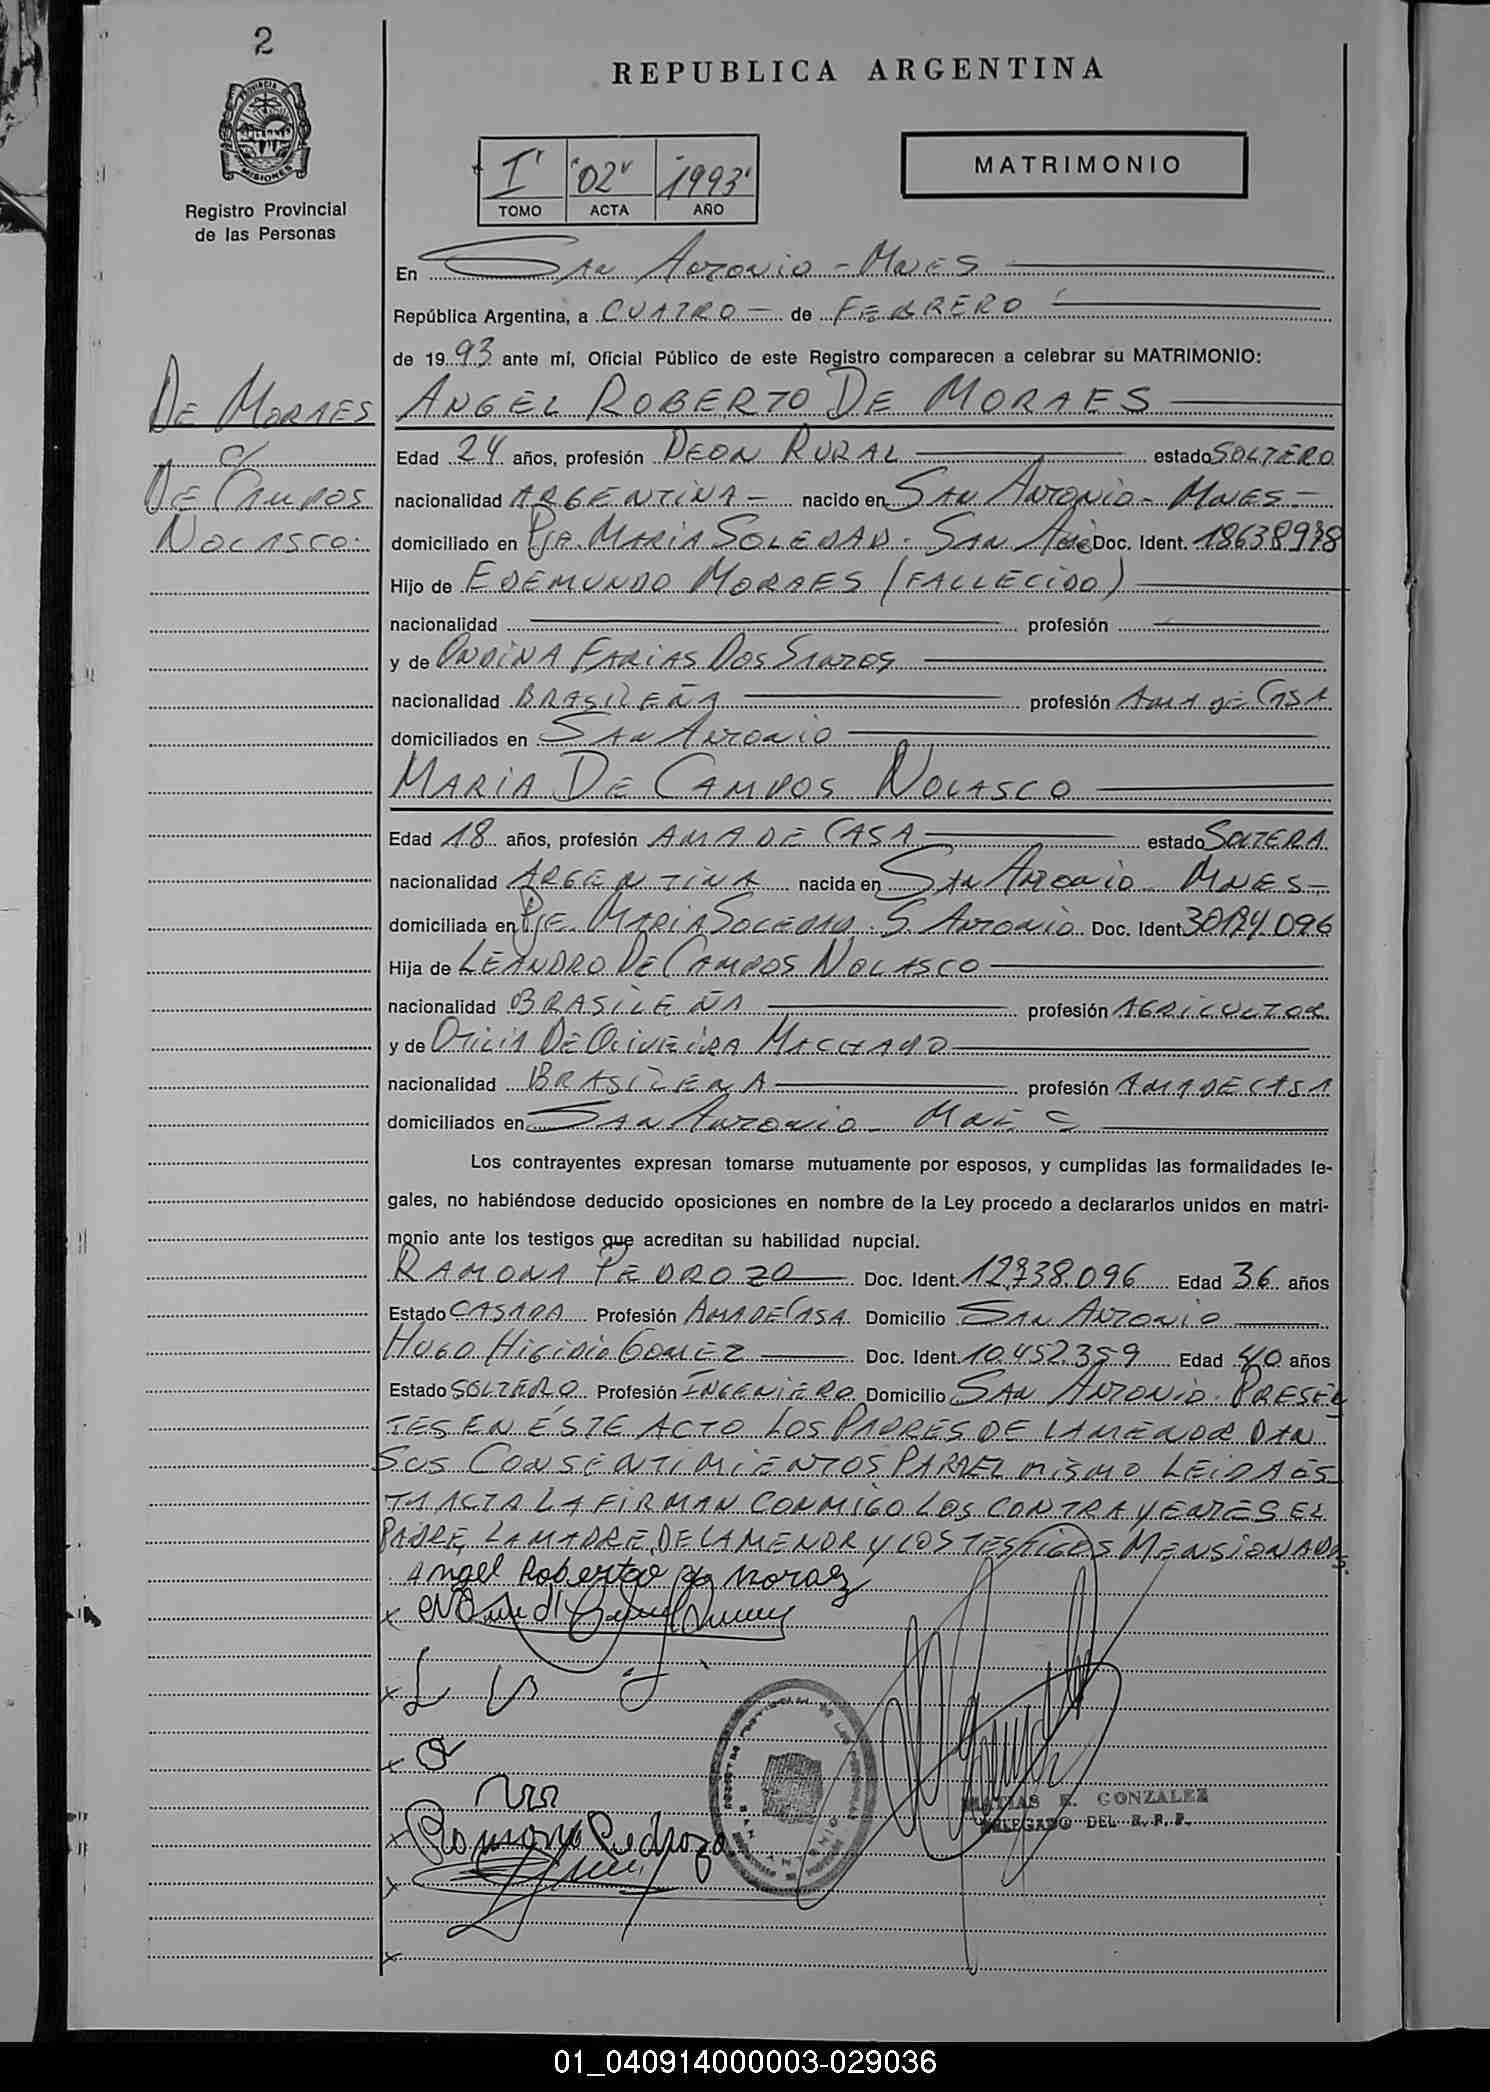 2
PROVINCIA DE
MISIONES
Registro Provincial
de las Personas
REPUBLICA ARGENTINA
I "02" "1993"
TOMO ACTA AÑO
MATRIMONIO
En SAN ANTONIO - MNES
República Argentina, a CUATRO - de FEBRERO
de 1993 ante mí, Oficial Público de este Registro comparecen a celebrar su MATRIMONIO:
DE MORAES
c/
DE CAMPOS
NOLASCO.
ANGEL ROBERTO DE MORAES
Edad 24 años, profesión PEON RURAL estado SOLTERO
nacionalidad ARGENTINA - nacido en SAN ANTONIO - MNES -
domiciliado en Pje. MARIA SOLEDAD. SAN Doc. Ident.
Hijo de EDEMUNDO MORAES (FALLECIDO)
nacionalidad profesión
y de ONDINA FARIAS DOS SANTOS
nacionalidad BRASILEÑA profesión AMA DE CASA
domiciliados en SAN ANTONIO
MARIA DE CAMPOS NOLASCO
Edad 18 años, profesión AMA DE CASA estado SOLTERA
nacionalidad ARGENTINA nacida en SAN ANTONIO - MNES -
domiciliada en Pje. MARIA SOLEDAD. S. ANTONIO Doc. Ident
Hija de LEANDRO DE CAMPOS NOLASCO
nacionalidad BRASILEÑA profesión AGRICULTOR
y de OTILIA DE OLIVEIRA MACHADO
nacionalidad BRASILENA profesión AMA DE CASA
domiciliados en SAN ANTONIO - MNES
Los contrayentes expresan tomarse mutuamente por esposos, y cumplidas las formalidades le-
gales, no habiéndose deducido oposiciones en nombre de la Ley procedo a declararlos unidos en matri-
monio ante los testigos que acreditan su habilidad nupcial.
RAMONA PEDROZO Doc. Ident. 12.738.096 Edad 36 años
Estado CASADA Profesión AMA DE CASA Domicilio SAN ANTONIO
HUGO HIGIDIO GOMEZ Doc. Ident. 10.452.359 Edad 40 años
Estado SOLTERO Profesión INGENIERO Domicilio SAN ANTONIO. PRESEN
TES EN ÉSTE ACTO LOS PADRES DE LA MENOR DAN
SUS CONSENTIMIENTOS PARA EL MISMO LEIDA ÉS
TA ACTA LA FIRMAN CONMIGO LOS CONTRAYENTES EL
PADRE, LA MADRE, DE LA MENOR Y LOS TESTIGOS MENSIONADOS.
Angel Roberto de Moraez
Ramona Pedrozo
MATIAS R. GONZALEZ
DELEGADO DEL R. P. P.
01_040914000003-029036